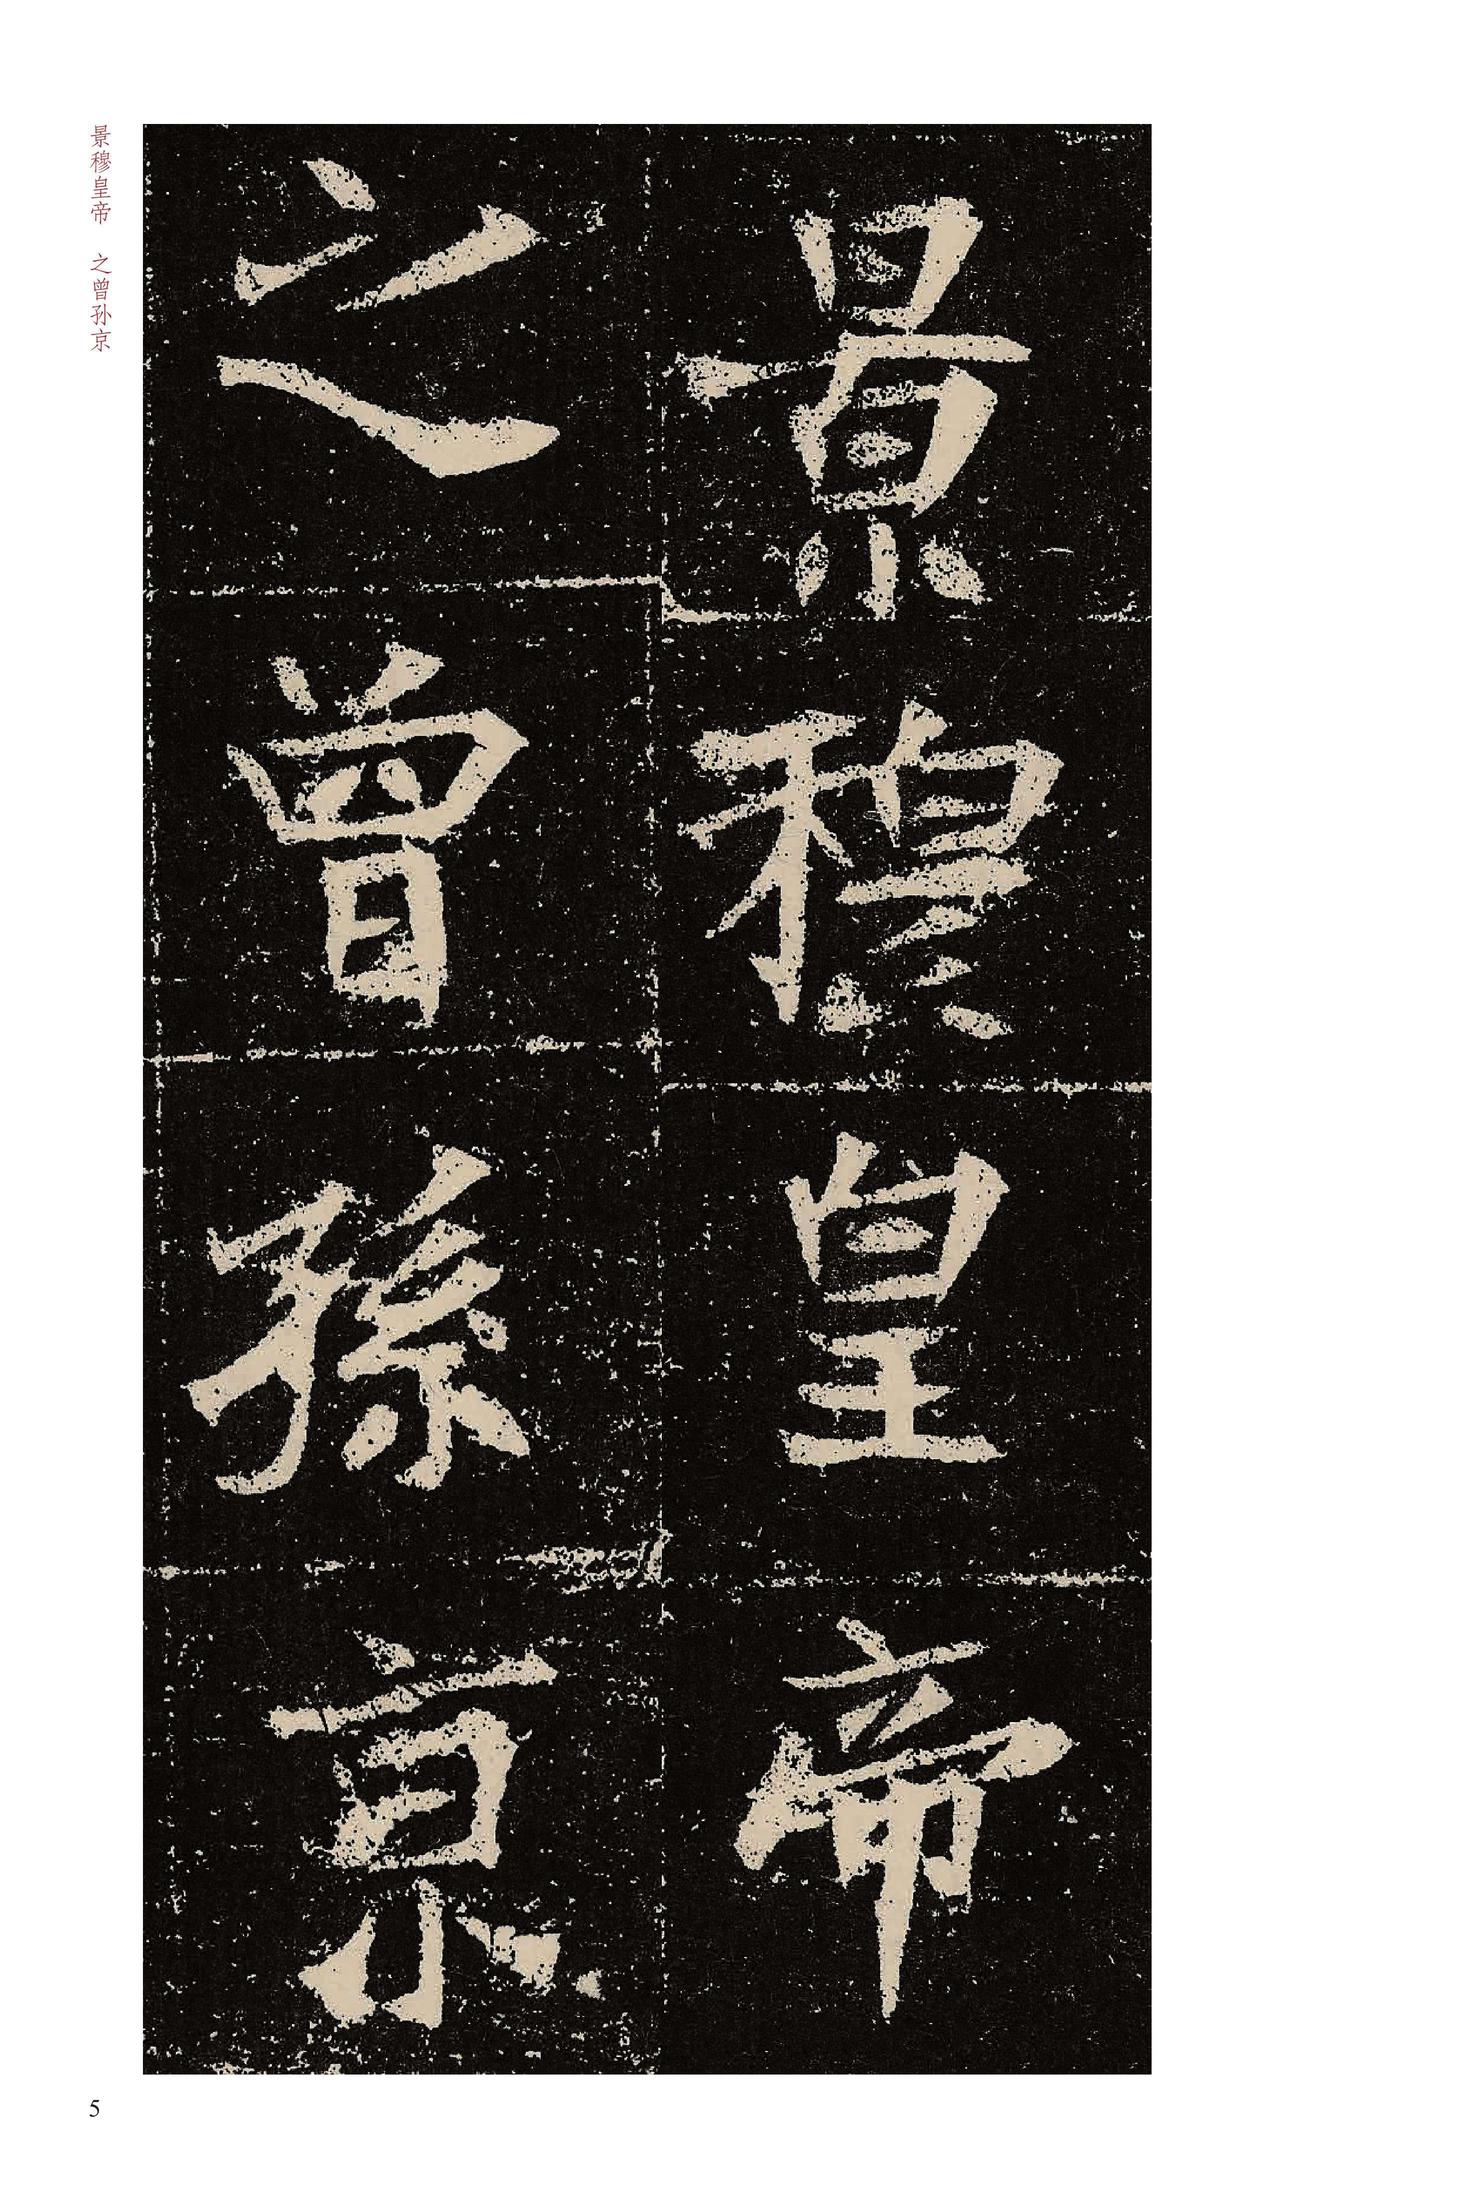 景穆皇帝
之曾孫京
景穆皇帝 之曾孙京
5